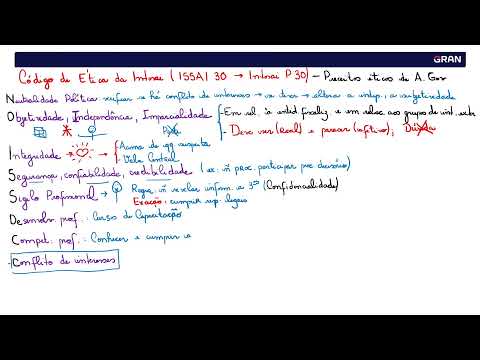 GRAN
Código de Ética da Intosai (ISSAI 30 → Intosai P 30) – Preceitos éticos da A. Gov
Neutralidade Política: verificar se há conflito de interesses → se disso → alterar a indep. e subjetividade
Objetividade, Independência, Imparcialidade – Em rel. à entid fiscaliz. e em relac. aos grupos de int. ext.
- Deve ser (real) e parecer (efetivo);
Integridade → Acima de qq suspeita
Valor Central
Segurança, confiabilidade, credibilidade (ex: ñ proc. participar proc decisório)
Sigilo Profissional → Regra: ñ revelar inform. a 3os (Confidencialidade)
Exceção: cumprir resp. legais
Desenvolv. prof.: Curso de Capacitação
Compet. prof.: Conhecer e cumprir o
- Conflito de interesses